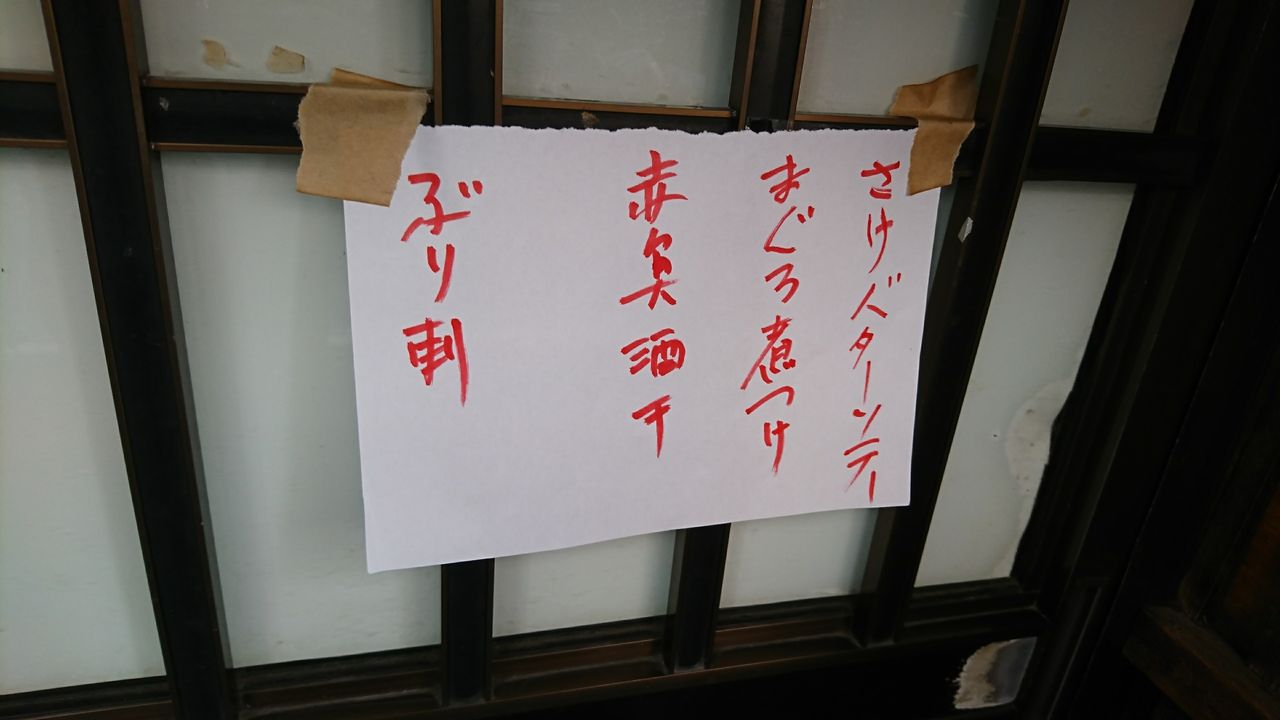 さけバターソテー
まぐろ煮つけ
赤魚酒干
ぶり刺